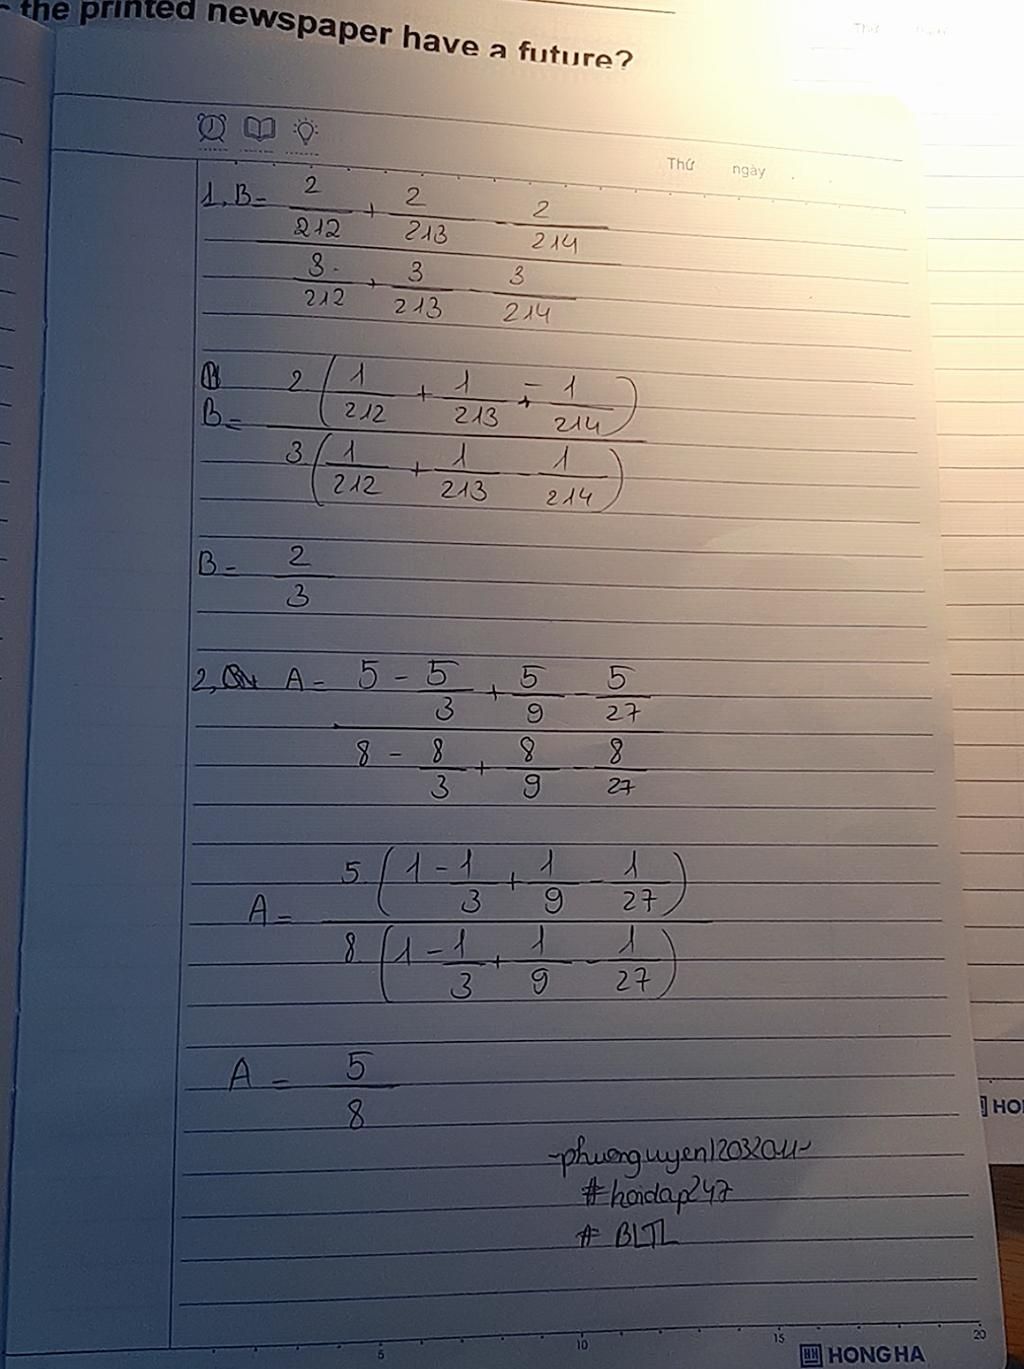 the printed newspaper have a future?
Thứ ngày
1, B = 2/212 + 2/213 - 2/214
3/212 + 3/213 - 3/214
B = 2 ( 1/212 + 1/213 - 1/214 )
3 ( 1/212 + 1/213 - 1/214 )
B = 2/3
2, A = 5 - 5/3 + 5/9 - 5/27
8 - 8/3 + 8/9 - 8/27
A = 5 ( 1 - 1/3 + 1/9 - 1/27 )
8 ( 1 - 1/3 + 1/9 - 1/27 )
A = 5/8
#hoidap247
# BLTL
HO
5 10 15 20
HH HONG HA